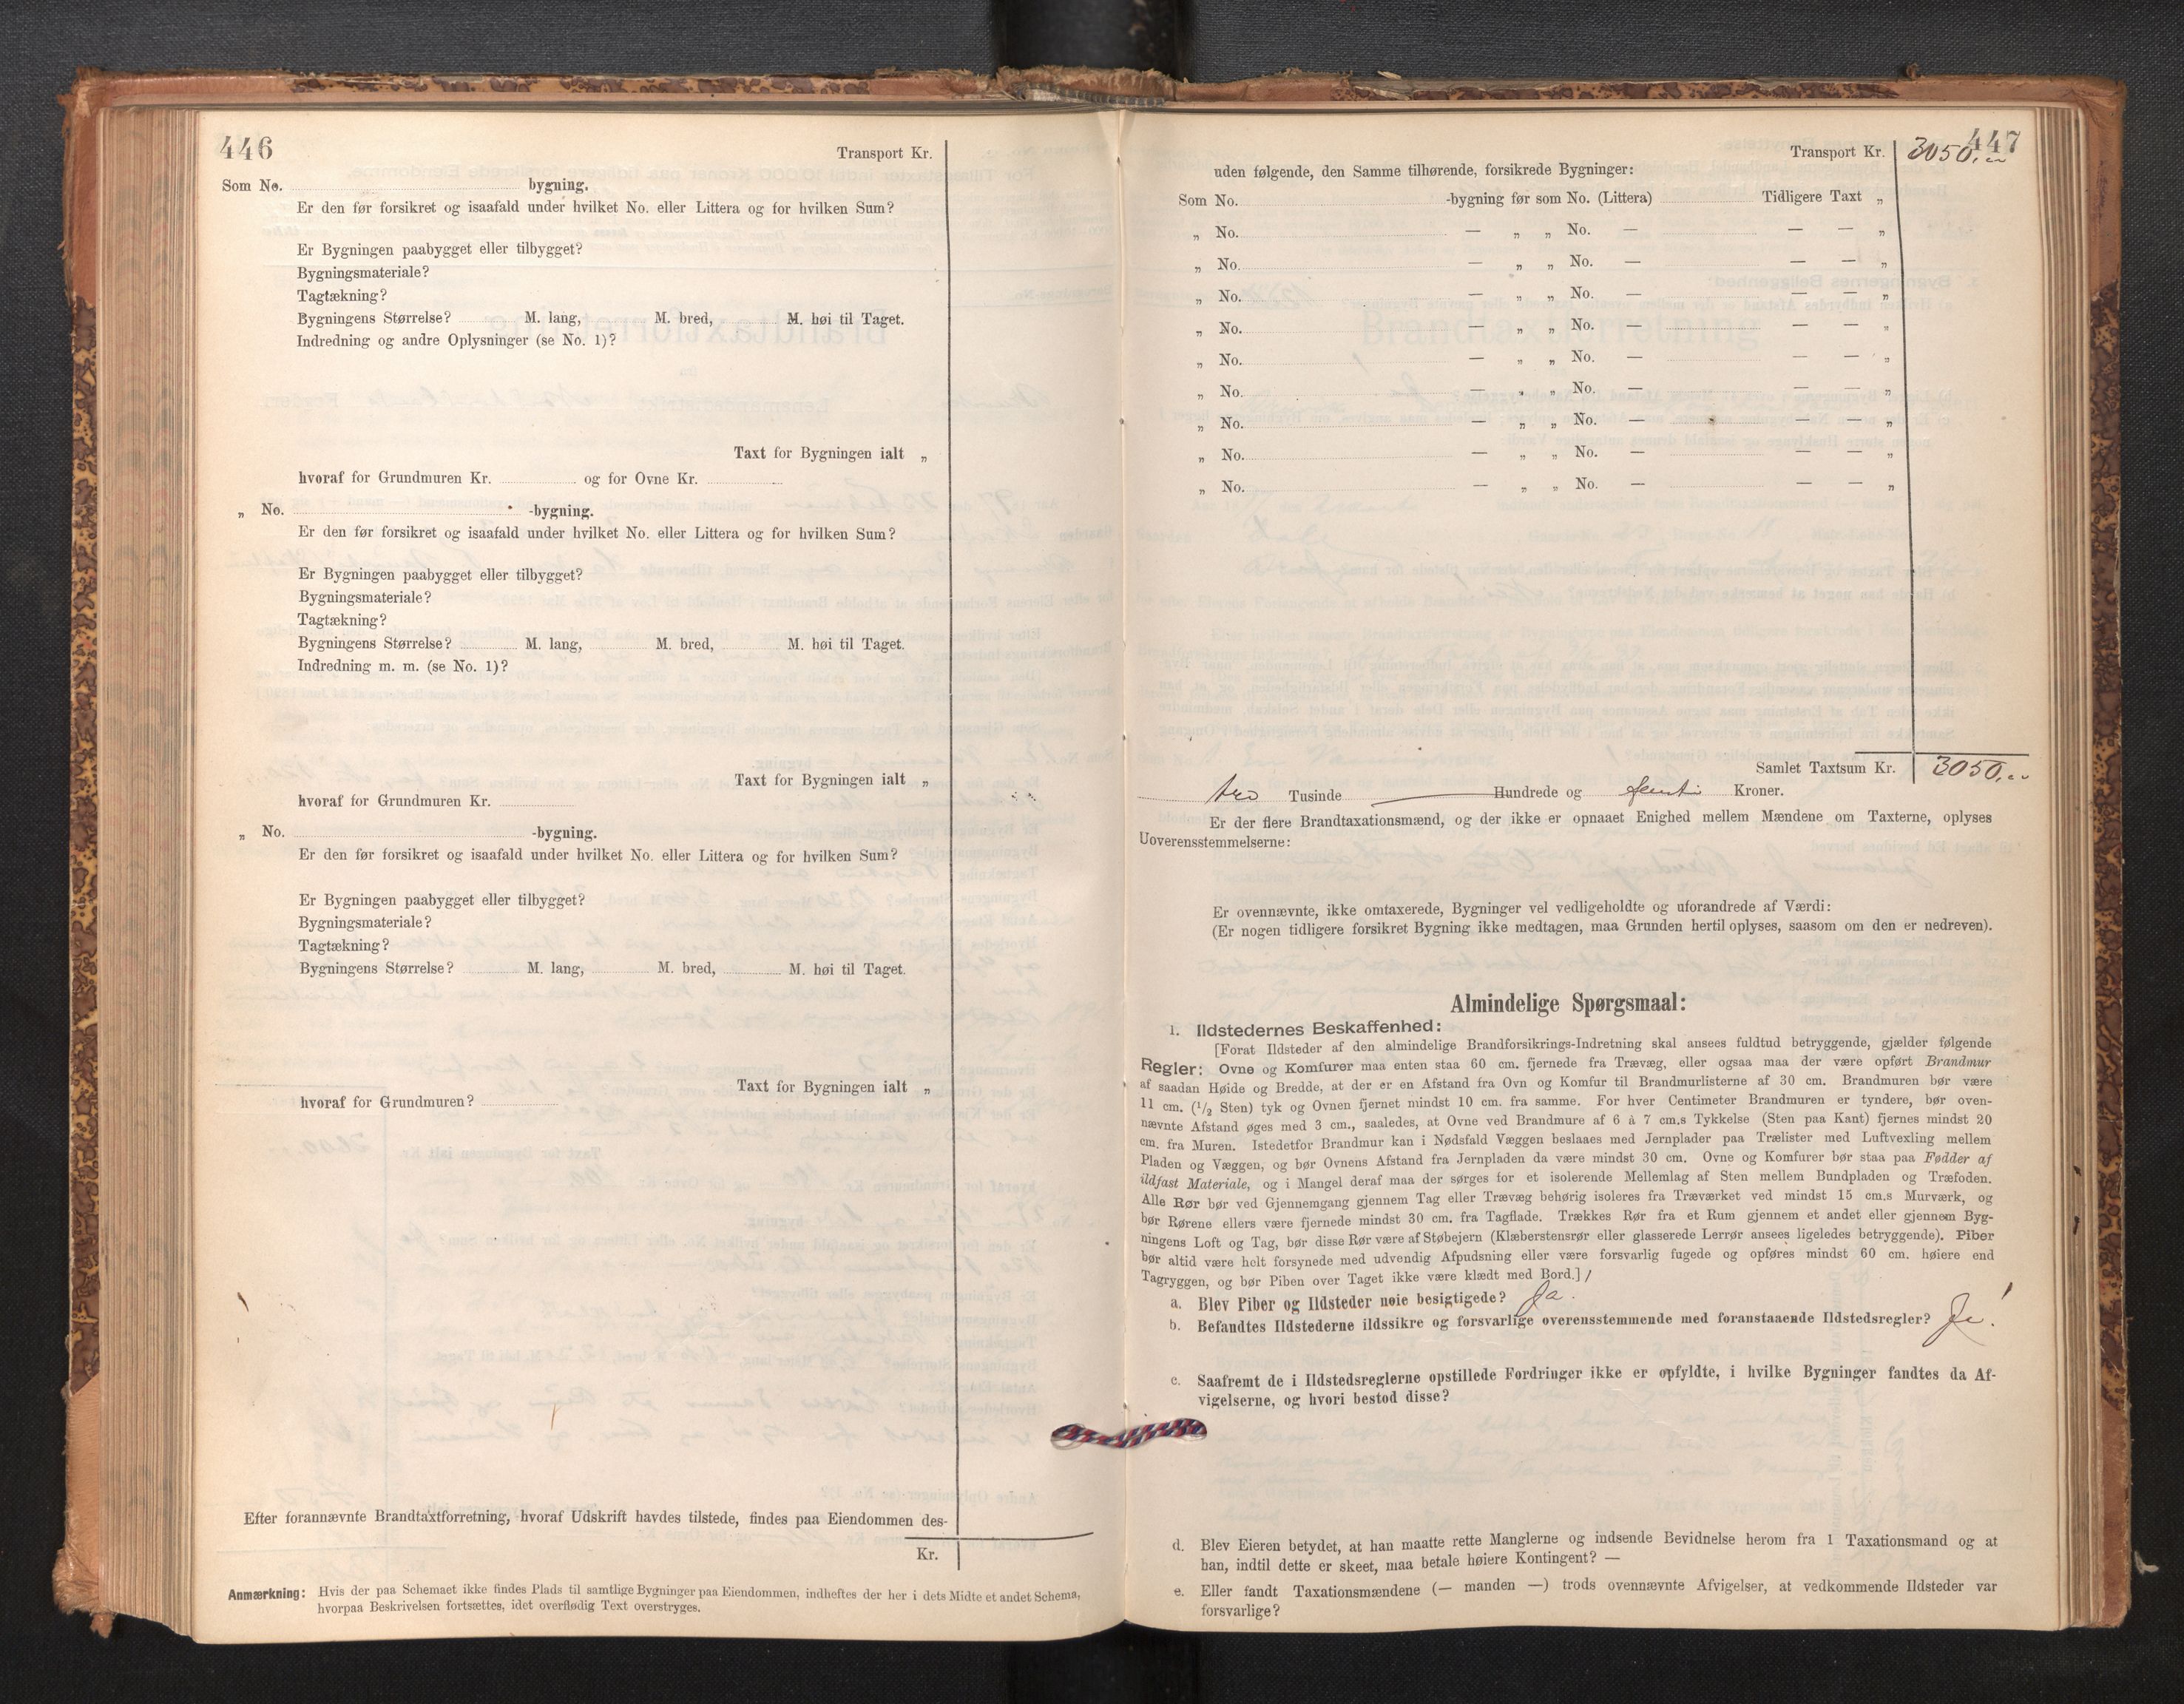 446
Transport Kr.
Som No. bygning.
Er den før forsikret og isaafald under hvilket No. eller Littera og for hvilken Sum?
Er Bygningen paabygget eller tilbygget?
Bygningsmateriale?
Tagtækning?
Bygningens Størrelse? M. lang, M. bred, M. høi til Taget.
Indredning og andre Oplysninger (se No. 1)?
Taxt for Bygningen ialt „
hvoraf for Grundmuren Kr. og for Ovne Kr.
„ No. -bygning.
Er den før forsikret og isaafald under hvilket No. eller Littera og for hvilken Sum?
Er Bygningen paabygget eller tilbygget?
Bygningsmateriale?
Tagtækning?
Bygningens Størrelse? M. lang, M. bred, M. høi til Taget.
Indredning m. m. (se No. 1)?
Taxt for Bygningen ialt „
hvoraf for Grundmuren Kr.
„ No. -bygning.
Er den før forsikret og isaafald under hvilket No. eller Littera og for hvilken Sum?
Er Bygningen paabygget eller tilbygget?
Bygningsmateriale?
Tagtækning?
Bygningens Størrelse? M. lang, M. bred, M. høi til Taget.
Taxt for Bygningen ialt „
hvoraf for Grundmuren?
Efter forannævnte Brandtaxtforretning, hvoraf Udskrift havdes tilstede, findes paa Eiendommen des-
Kr.
Anmærkning: Hvis der paa Schemaet ikke findes Plads til samtlige Bygninger paa Eiendommen, indheftes der her i dets Midte et andet Schema,
hvorpaa Beskrivelsen fortsættes, idet overflødig Text overstryges.
447
Transport Kr. 3050,--
uden følgende, den Samme tilhørende, forsikrede Bygninger:
Som No. -bygning før som No. (Littera) Tidligere Taxt „
„ No. — „ „ No. — — — „
„ No. — „ „ No. — — — „
„ No. — „ „ No. — — — „
„ No. — „ „ No. — — — „
„ No. — „ „ No. — — — „
„ No. — „ „ No. — — — „
„ No. — „ „ No. — — — „
„ No. — „ „ No. — — — „
„ No. — „ „ No. — — — „
Samlet Taxtsum Kr. 3050,--
tre Tusinde — Hundrede og femti Kroner.
Er der flere Brandtaxationsmænd, og der ikke er opnaaet Enighed mellem Mændene om Taxterne, oplyses
Uoverensstemmelserne:
Er ovennævnte, ikke omtaxerede, Bygninger vel vedligeholdte og uforandrede af Værdi:
(Er nogen tidligere forsikret Bygning ikke medtagen, maa Grunden hertil oplyses, saasom om den er nedreven).
Almindelige Spørgsmaal:
1. Ildstedernes Beskaffenhed:
[Forat Ildsteder af den almindelige Brandforsikrings-Indretning skal ansees fuldtud betryggende, gjælder følgende
Regler: Ovne og Komfurer maa enten staa 60 cm. fjernede fra Trævæg, eller ogsaa maa der være opført Brandmur
af saadan Høide og Bredde, at der er en Afstand fra Ovn og Komfur til Brandmurlisterne af 30 cm. Brandmuren bør være
11 cm. (1/2 Sten) tyk og Ovnen fjernet mindst 10 cm. fra samme. For hver Centimeter Brandmuren er tyndere, bør oven-
nævnte Afstand øges med 3 cm., saaledes, at Ovne ved Brandmure af 6 à 7 cm.s Tykkelse (Sten paa Kant) fjernes mindst 20
cm. fra Muren. Istedetfor Brandmur kan i Nødsfald Væggen beslaaes med Jernplader paa Trælister med Luftvexling mellem
Pladen og Væggen, og bør Ovnens Afstand fra Jernpladen da være mindst 30 cm. Ovne og Komfurer bør staa paa Fødder af
ildfast Materiale, og i Mangel deraf maa der sørges for et isolerende Mellemlag af Sten mellem Bundpladen og Træfoden.
Alle Rør bør ved Gjennemgang gjennem Tag eller Trævæg behørig isoleres fra Træværket ved mindst 15 cm.s Murværk, og
bør Rørene ellers være fjernede mindst 30 cm. fra Tagflade. Trækkes Rør fra et Rum gjennem et andet eller gjennem Byg-
ningens Loft og Tag, bør disse Rør være af Støbejern (Klæberstensrør eller glasserede Lerrør ansees ligeledes betryggende). Piber
bør altid være helt forsynede med udvendig Afpudsning eller være forsvarlig fugede og opføres mindst 60 cm. høiere end
Tagryggen, og bør Piben over Taget ikke være klædt med Bord.]
a. Blev Piber og Ildsteder nøie besigtigede? Ja.
b. Befandtes Ildstederne ildssikre og forsvarlige overensstemmende med foranstaaende Ildstedsregler? Ja.
c. Saafremt de i Ildstedsreglerne opstillede Fordringer ikke er opfyldte, i hvilke Bygninger fandtes da Af-
vigelserne, og hvori bestod disse?
d. Blev Eieren betydet, at han maatte rette Manglerne og indsende Bevidnelse herom fra 1 Taxationsmand og at
han, indtil dette er skeet, maa betale høiere Kontingent? —
e. Eller fandt Taxationsmændene (— manden —) trods ovennævnte Afvigelser, at vedkommende Ildsteder var
forsvarlige?